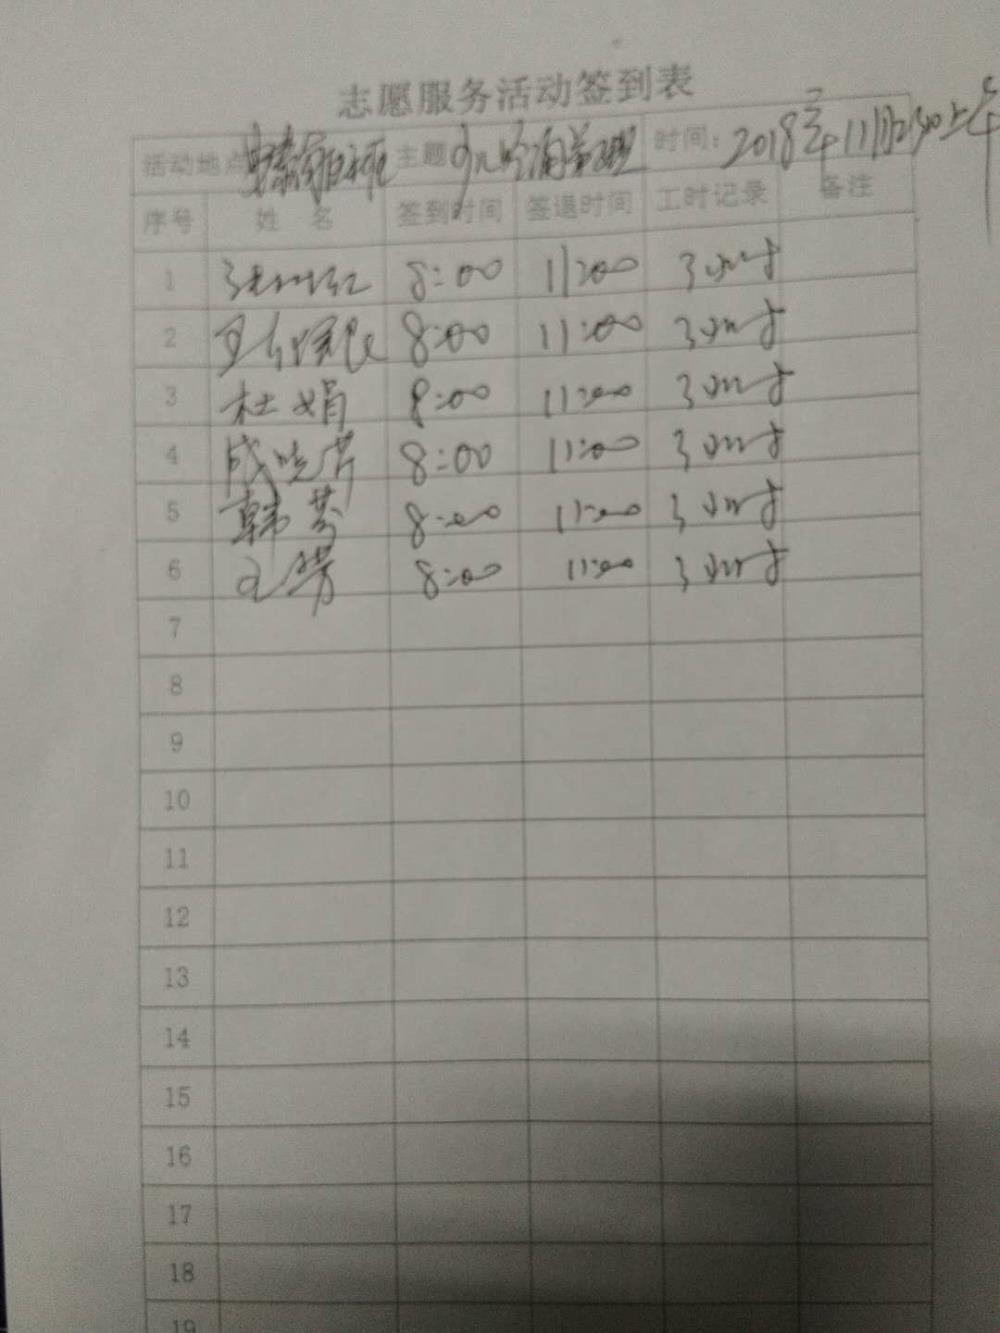 志愿服务活动签到表
活动地点 主题 时间: 2018年11月 上午
序号 姓 名 签到时间 签退时间 工时记录 备注
1 8:00 11:00 3小时
2 8:00 11:00 3小时
3 杜娟 8:00 11:00 3小时
4 成晓芹 8:00 11:00 3小时
5 韩芬 8:00 11:00 3小时
6 8:00 11:00 3小时
7
8
9
10
11
12
13
14
15
16
17
18
19